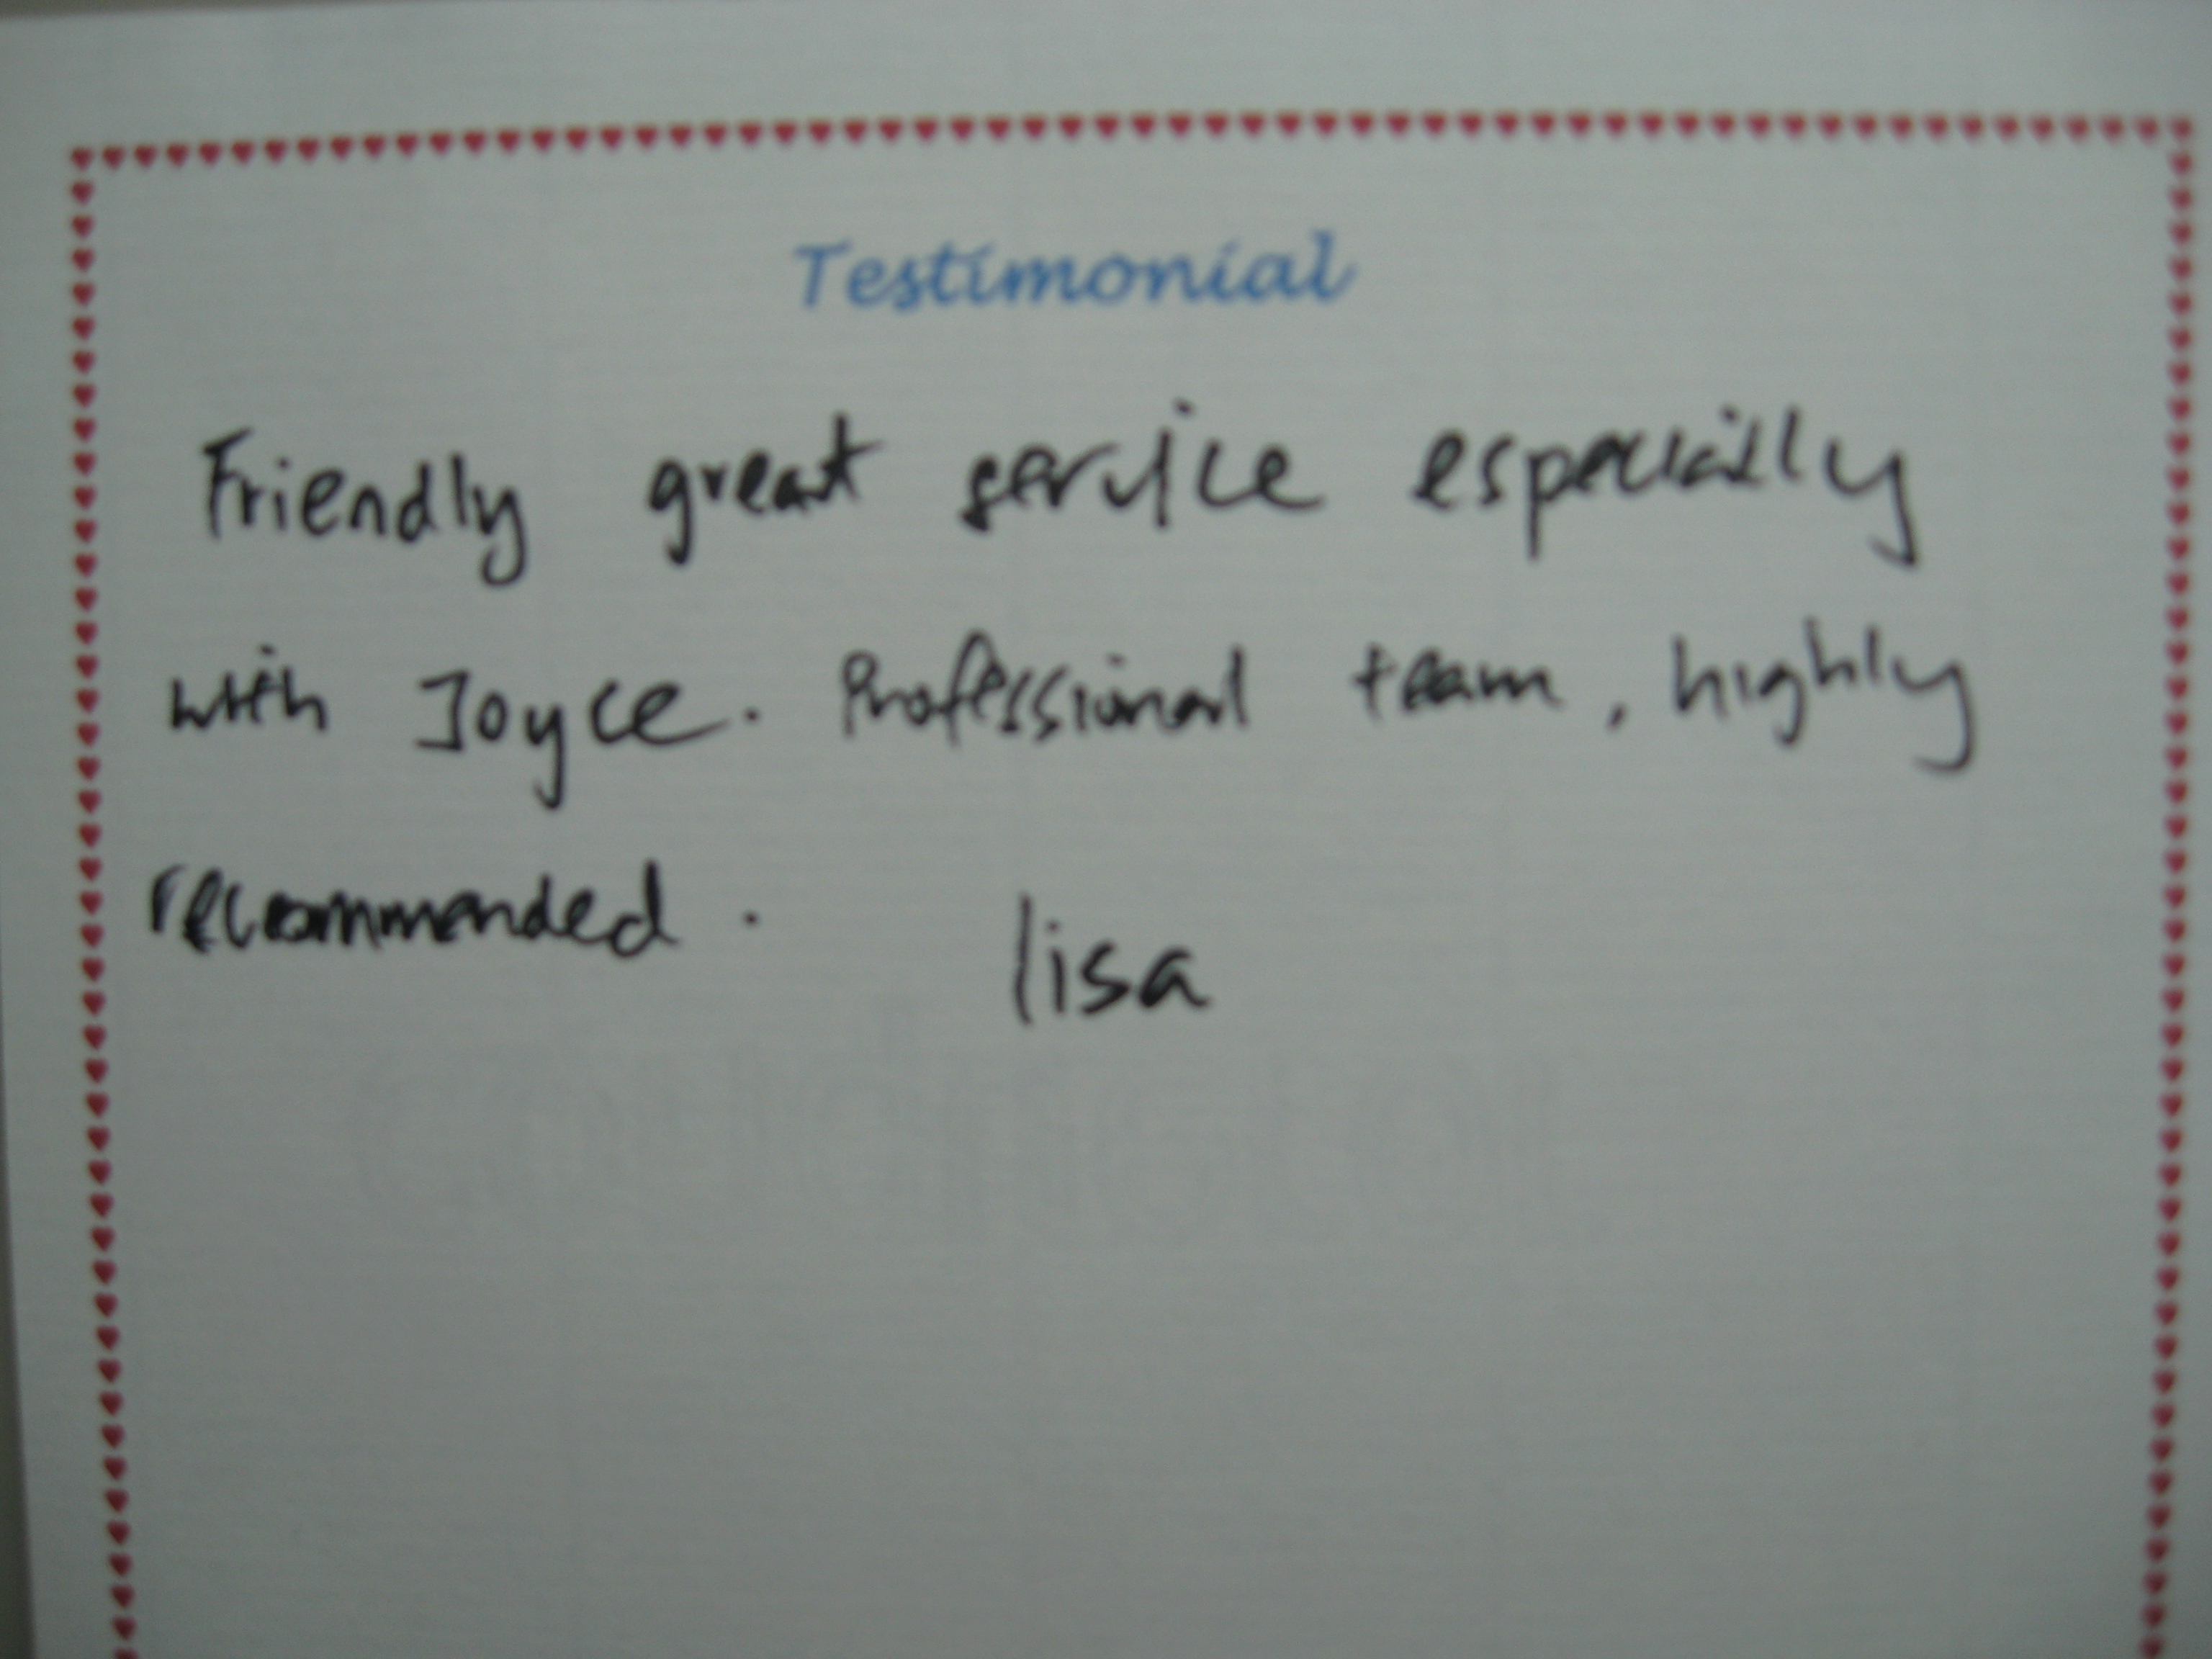 Testimonial
Friendly great service especially
with Joyce. Professional team, highly
recommended.
lisa